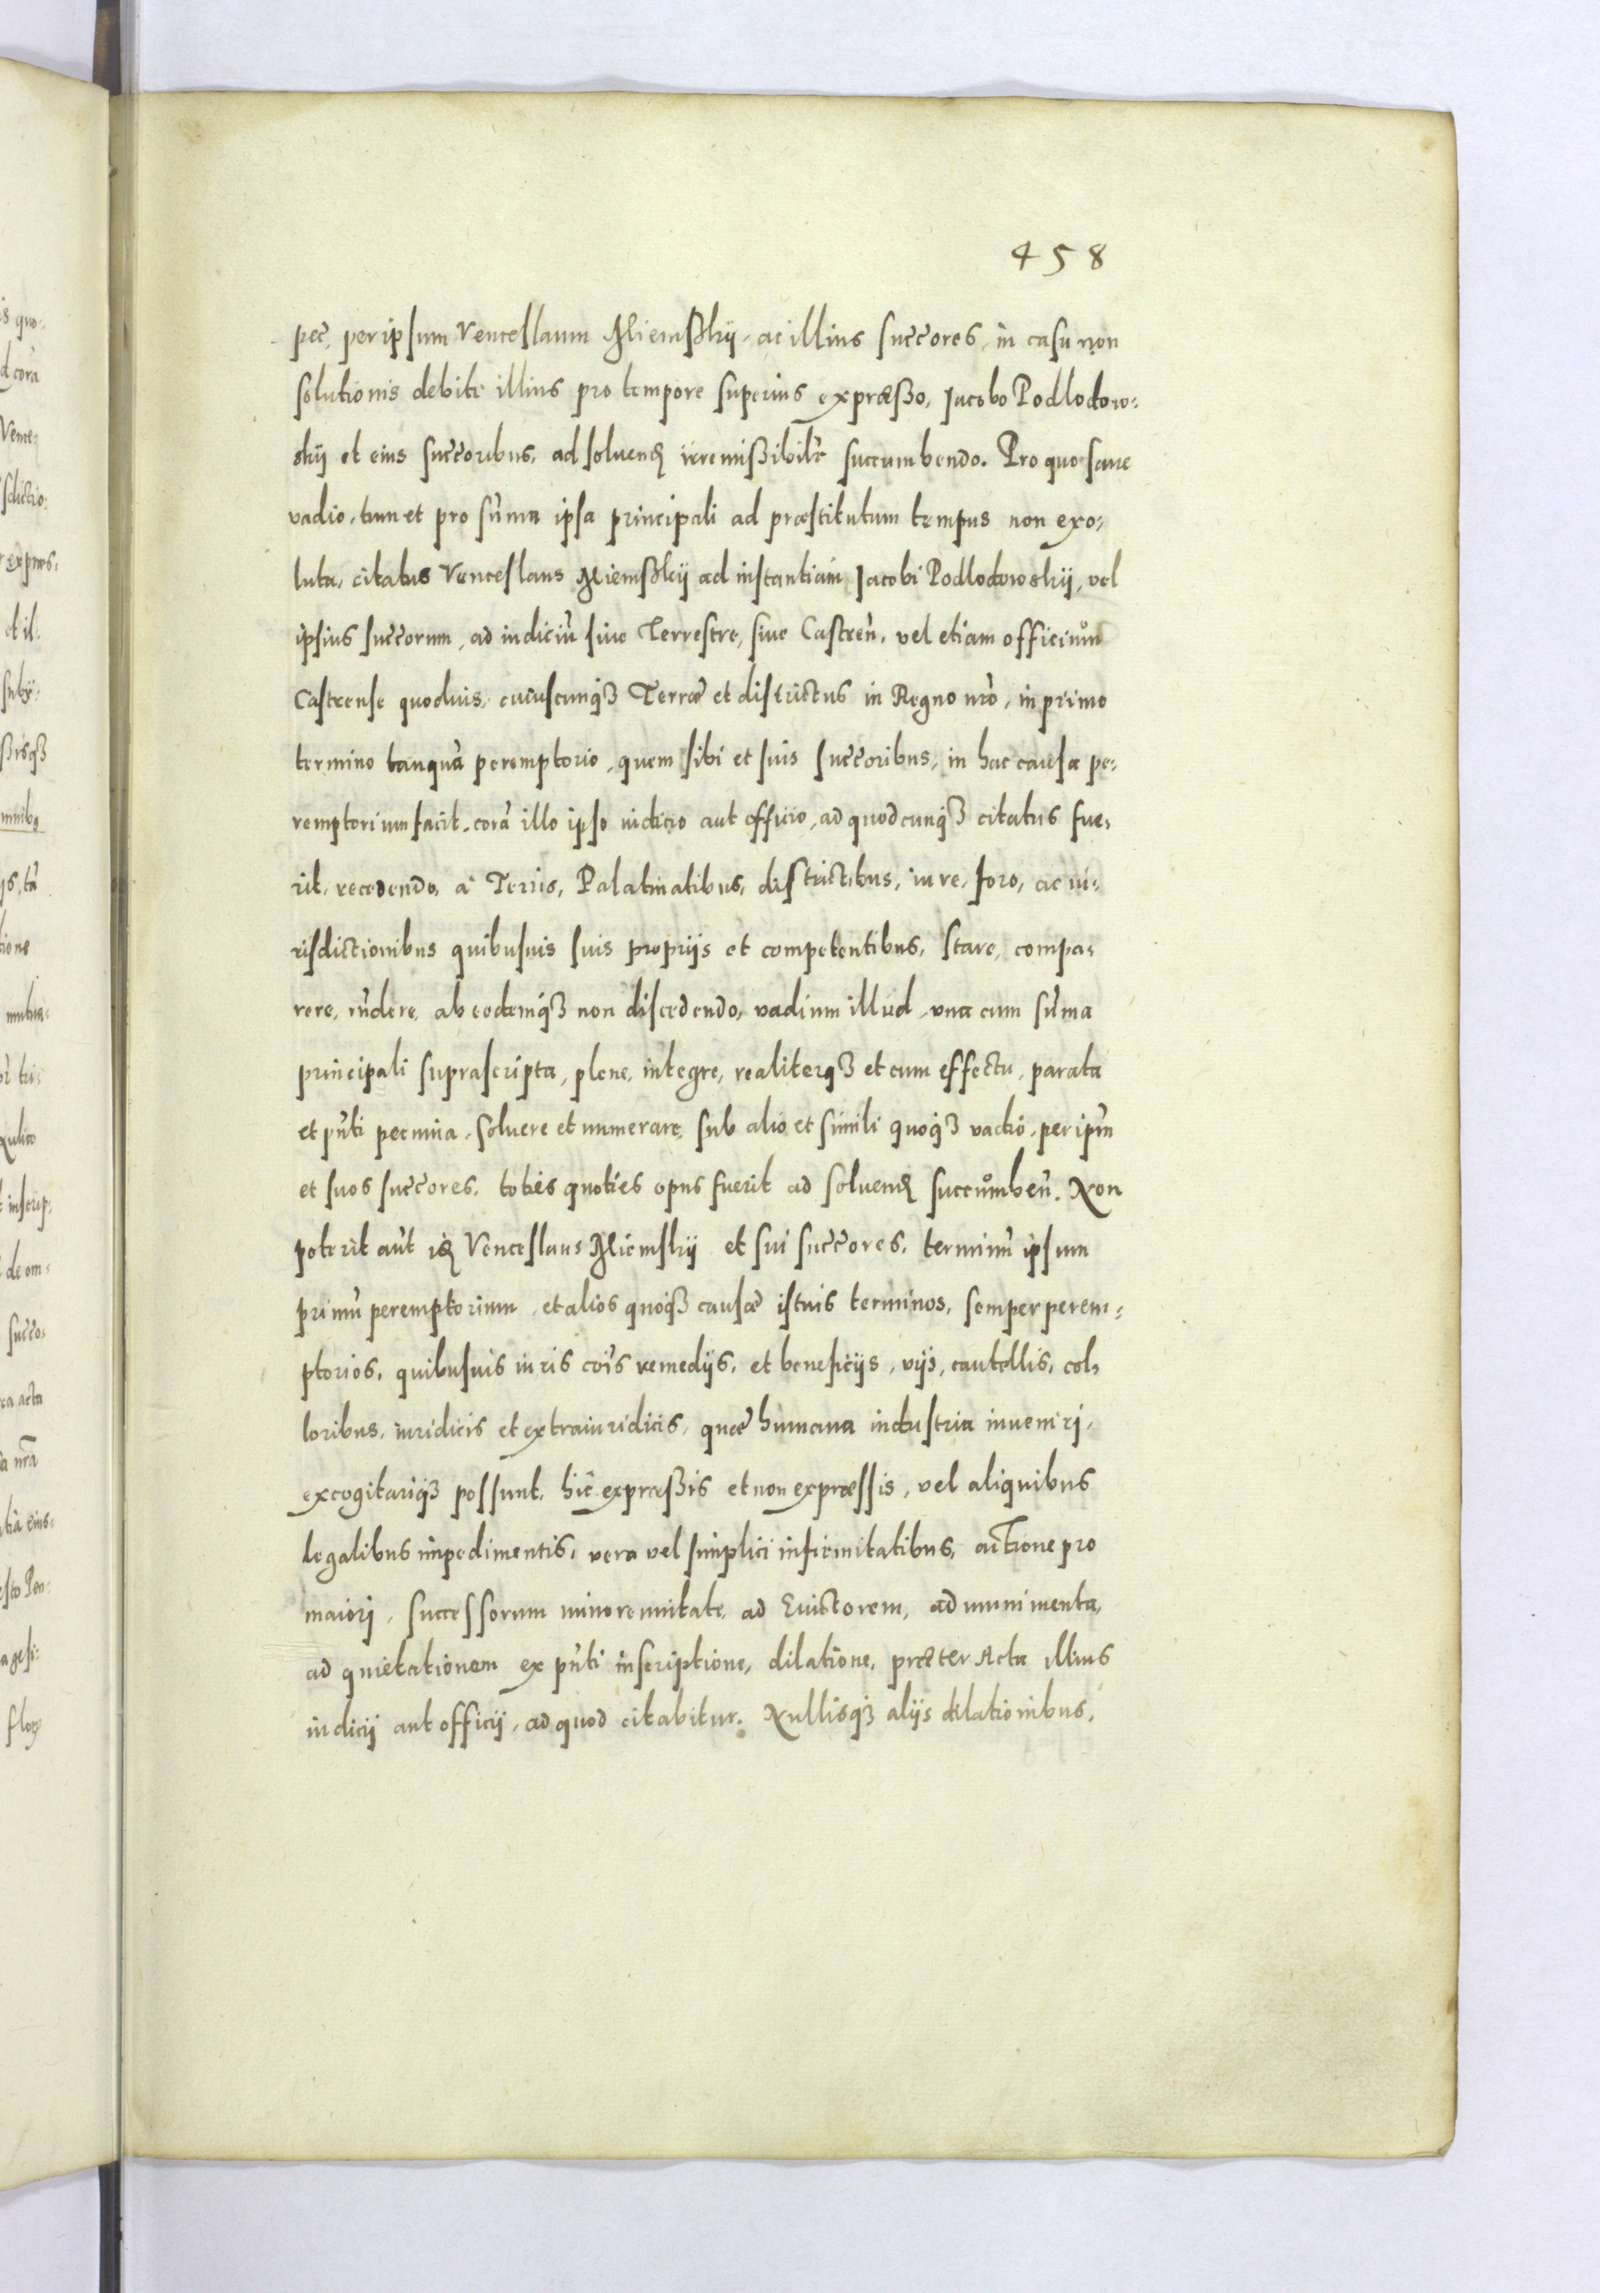 458
pec̃, per ipsum Venceslaum Niemsßkij, ac illius succ̃ores, in casu non
solutionis debite illius pro tempore superius expræßo, Jacobo Podlodow-
skij et eius succ̃oribus, ad soluend̃ irremißibilr̃ succumbendo. Pro quo sane
vadio, tum et pro sum̃a ipsa principali ad præstitutum tempus non exo-
luta, citatus Venceslaus Niemßkij ad instantiam Jacobi Podlodowskij, vel
ipsius succ̃orum, ad iudiciũ siue Terrestre, siue Castreñ, vel etiam officium
Castrense quoduis, cuiuscunqꝫ Terræ et districtus in Regno nr̃o, in primo
termino tanquã peremptorio, quem sibi et suis succ̃oribus, in hac causa pe-
remptorium facit, corã illo ipso iudicio aut officio, ad quodcunqꝫ citatus fue-
rit, recedendo, à Terris, Palatinatibus, districtibus, iure, foro, ac iu-
risdictionibus quibusuis suis proprijs et competentibus, stare, compa-
rere, rñdere, ab eodemqꝫ non discedendo, vadium illud, vna cum sum̃a
principali suprascripta, plene, integre, realiterqꝫ et cum effectu, parata
et pñti pecunia, soluere et numerare, sub alio et simili quoqꝫ vadio, per ipm̃
et suos succ̃ores, toties quoties opus fuerit ad soluend̃ succumbeñ. Non
poterit aũt id̃ Venceslaus Niemskij et sui succ̃ores, terminũ ipsum
primũ peremptorium, et alios quoqꝫ causæ istuis terminos, semper perem-
ptorios, quibusuis iuris cõis remedijs, et beneficijs, vijs, cautellis, col-
loribus, iuridicis et extraiuridicis, quæ humana industria inueniri,
excogitariqꝫ possunt, hic expræßis et non expræssis, vel aliquibus
legalibus impedimentis, vera vel simplici infirmitatibus, actione pro
maiori, successorum minorennitate, ad Euictorem, ad munimenta,
ad quietationem ex pñti inscriptione, dilatione, præter Acta illius
iudicij aut officij, ad quod citabitur. Nullisqꝫ alijs dilationibus,